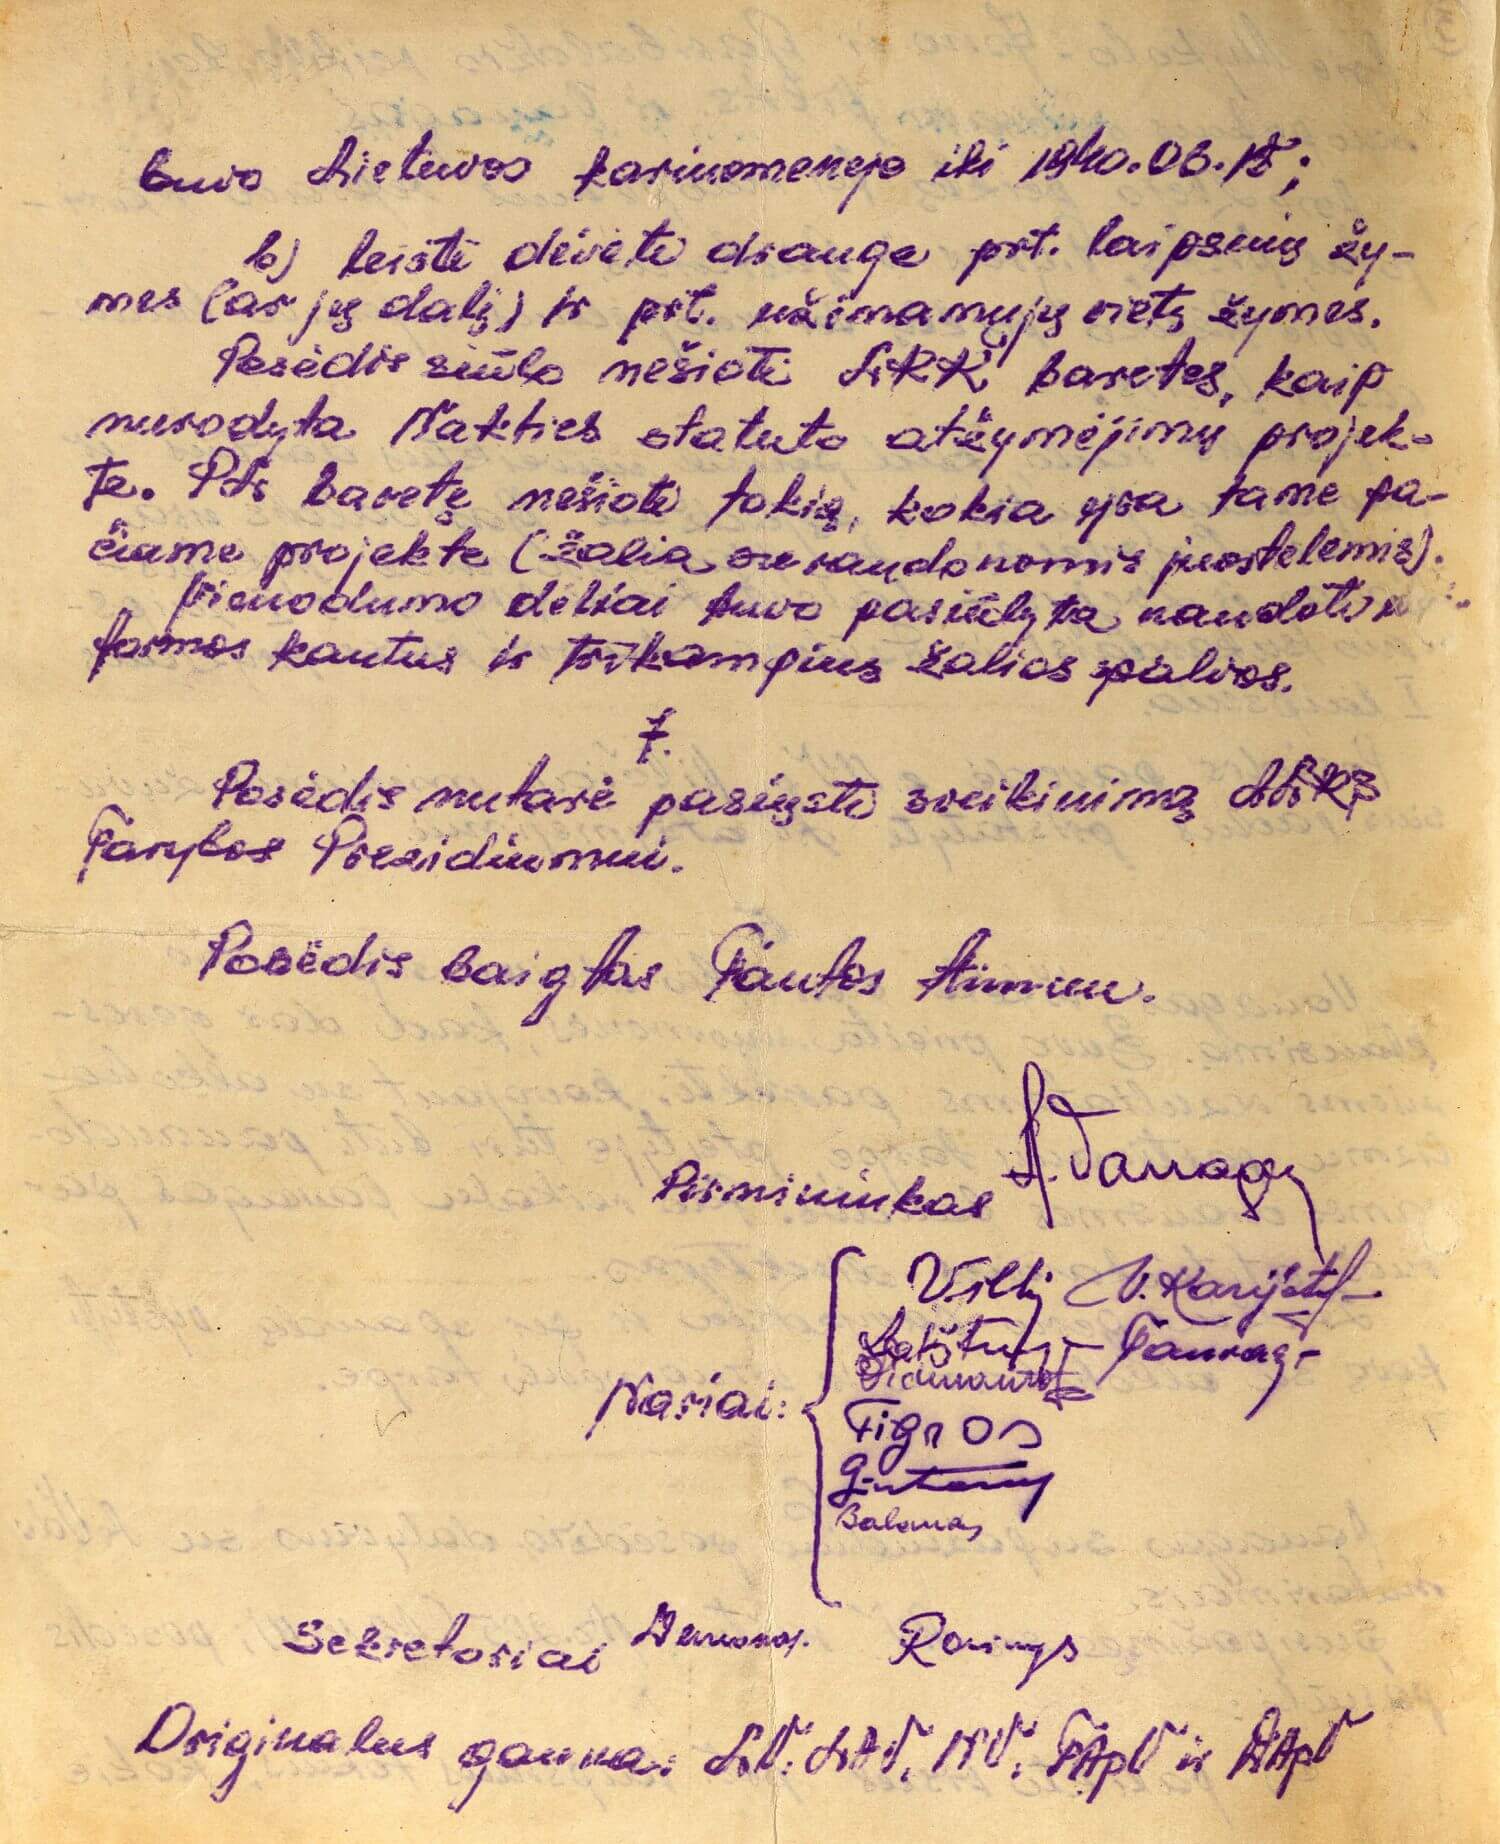 buvo Lietuvos kariuomenėje iki 1940.06.15;
b) leisti dėvėti drauge prt. laipsnių žy-
mes (ar jų dalį) ir prt. užimamųjų vietų žymes.
Posėdis siūlo nešioti LKK baretes, kaip
nurodyta Nakties statuto atžymėjimų projek-
te. Pts baretę nešioti tokią, kokia yra tame pa-
čiame projekte (žalia su raudonomis juostelėmis).
Vienodumo dėliai buvo pasiūlyta naudoti
formos kantus ir trikampius žalios spalvos.
7.
Posėdis nutarė pasiųsti sveikinimą
Tarybos Prezidiumui.
Posėdis baigtas Tautos himnu.
Pirmininkas A. Vanagas
V. Kariješt
Nariai:
Tigras
Gintaras
Balanas
Sekretoriai Ramunas Ramys
Originalus gauna: